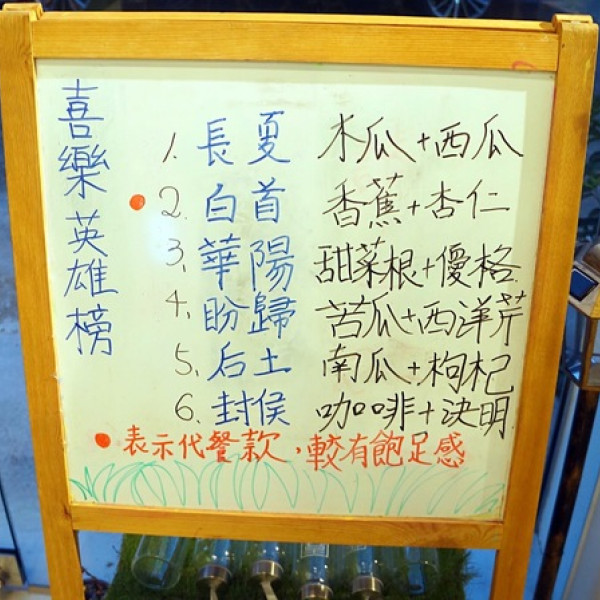 喜樂英雄榜
1. 長夏 木瓜+西瓜
2. 白首 香蕉+杏仁
3. 華陽 甜菜根+優格
4. 盼歸 苦瓜+西洋芹
5. 后土 南瓜+枸杞
6. 封侯 咖啡+決明
表示代餐款，較有飽足感